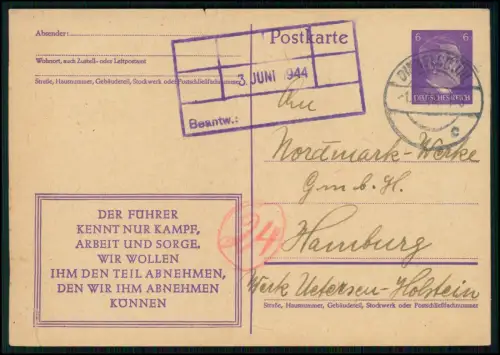 Absender:
Wohnort, auch Zustell- oder Leitpostamt
Straße, Hausnummer, Gebäudeteil, Stockwerk oder Postschließfachnummer
Postkarte
6 6
DEUTSCHES REICH
c
3. JUNI 1944
Beantw.:
An
Nordmark-Werke
G.m.b.H.
Hamburg
Werk Uetersen-Holstein
Straße, Hausnummer, Gebäudeteil, Stockwerk oder Postschließfachnummer
24
DER FÜHRER
KENNT NUR KAMPF,
ARBEIT UND SORGE.
WIR WOLLEN
IHM DEN TEIL ABNEHMEN,
DEN WIR IHM ABNEHMEN
KÖNNEN